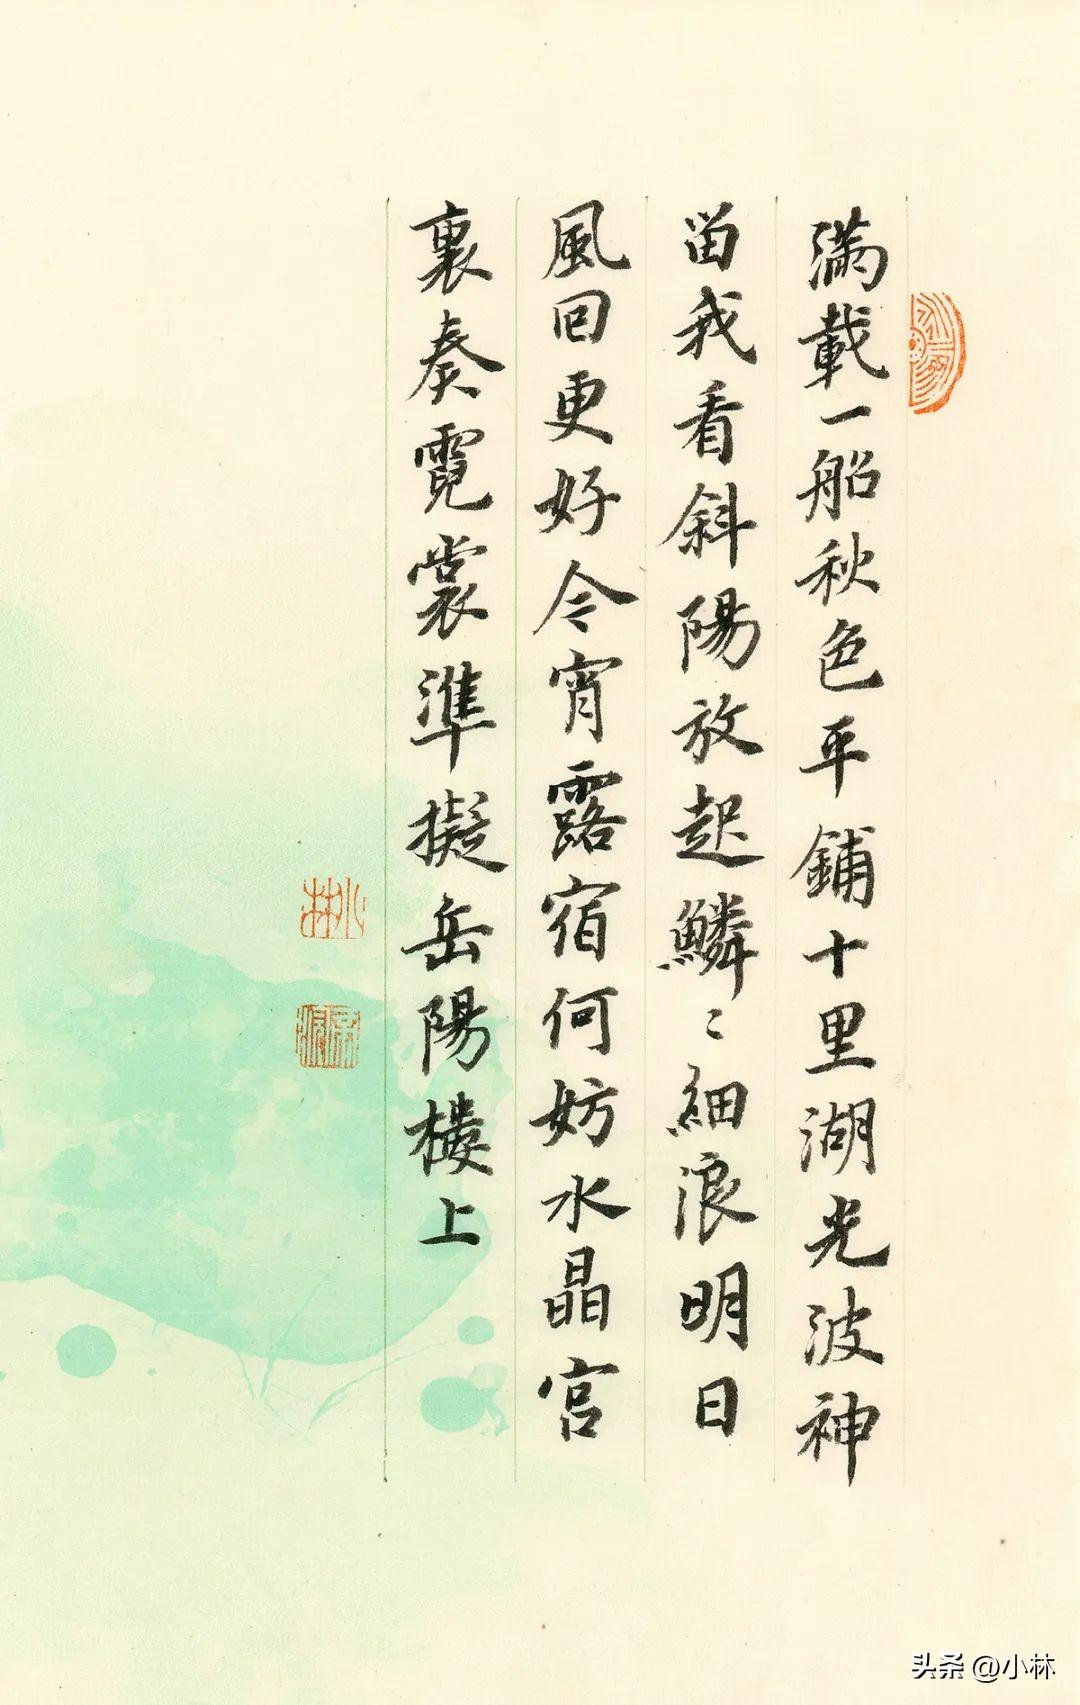 満載一船秋色平鋪十里湖光波神
留我看斜陽放起鱗〻細浪明日
風回更好今宵露宿何妨水晶宮
裏奏霓裳準擬岳陽樓上
小林
头条 @小林